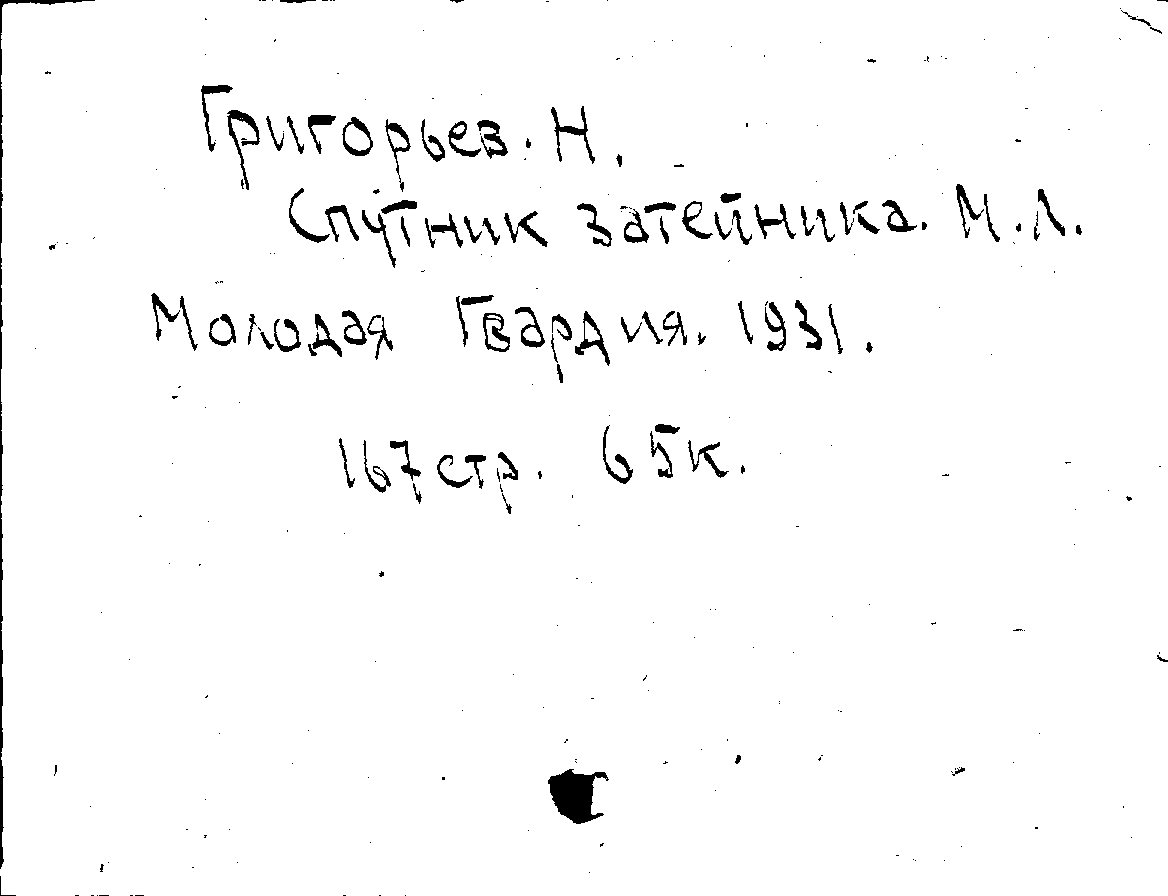 Григорьев. Н.
Спутник затейника. М.Л.
Молодая Гвардия. 1931.
167 стр. 65к.